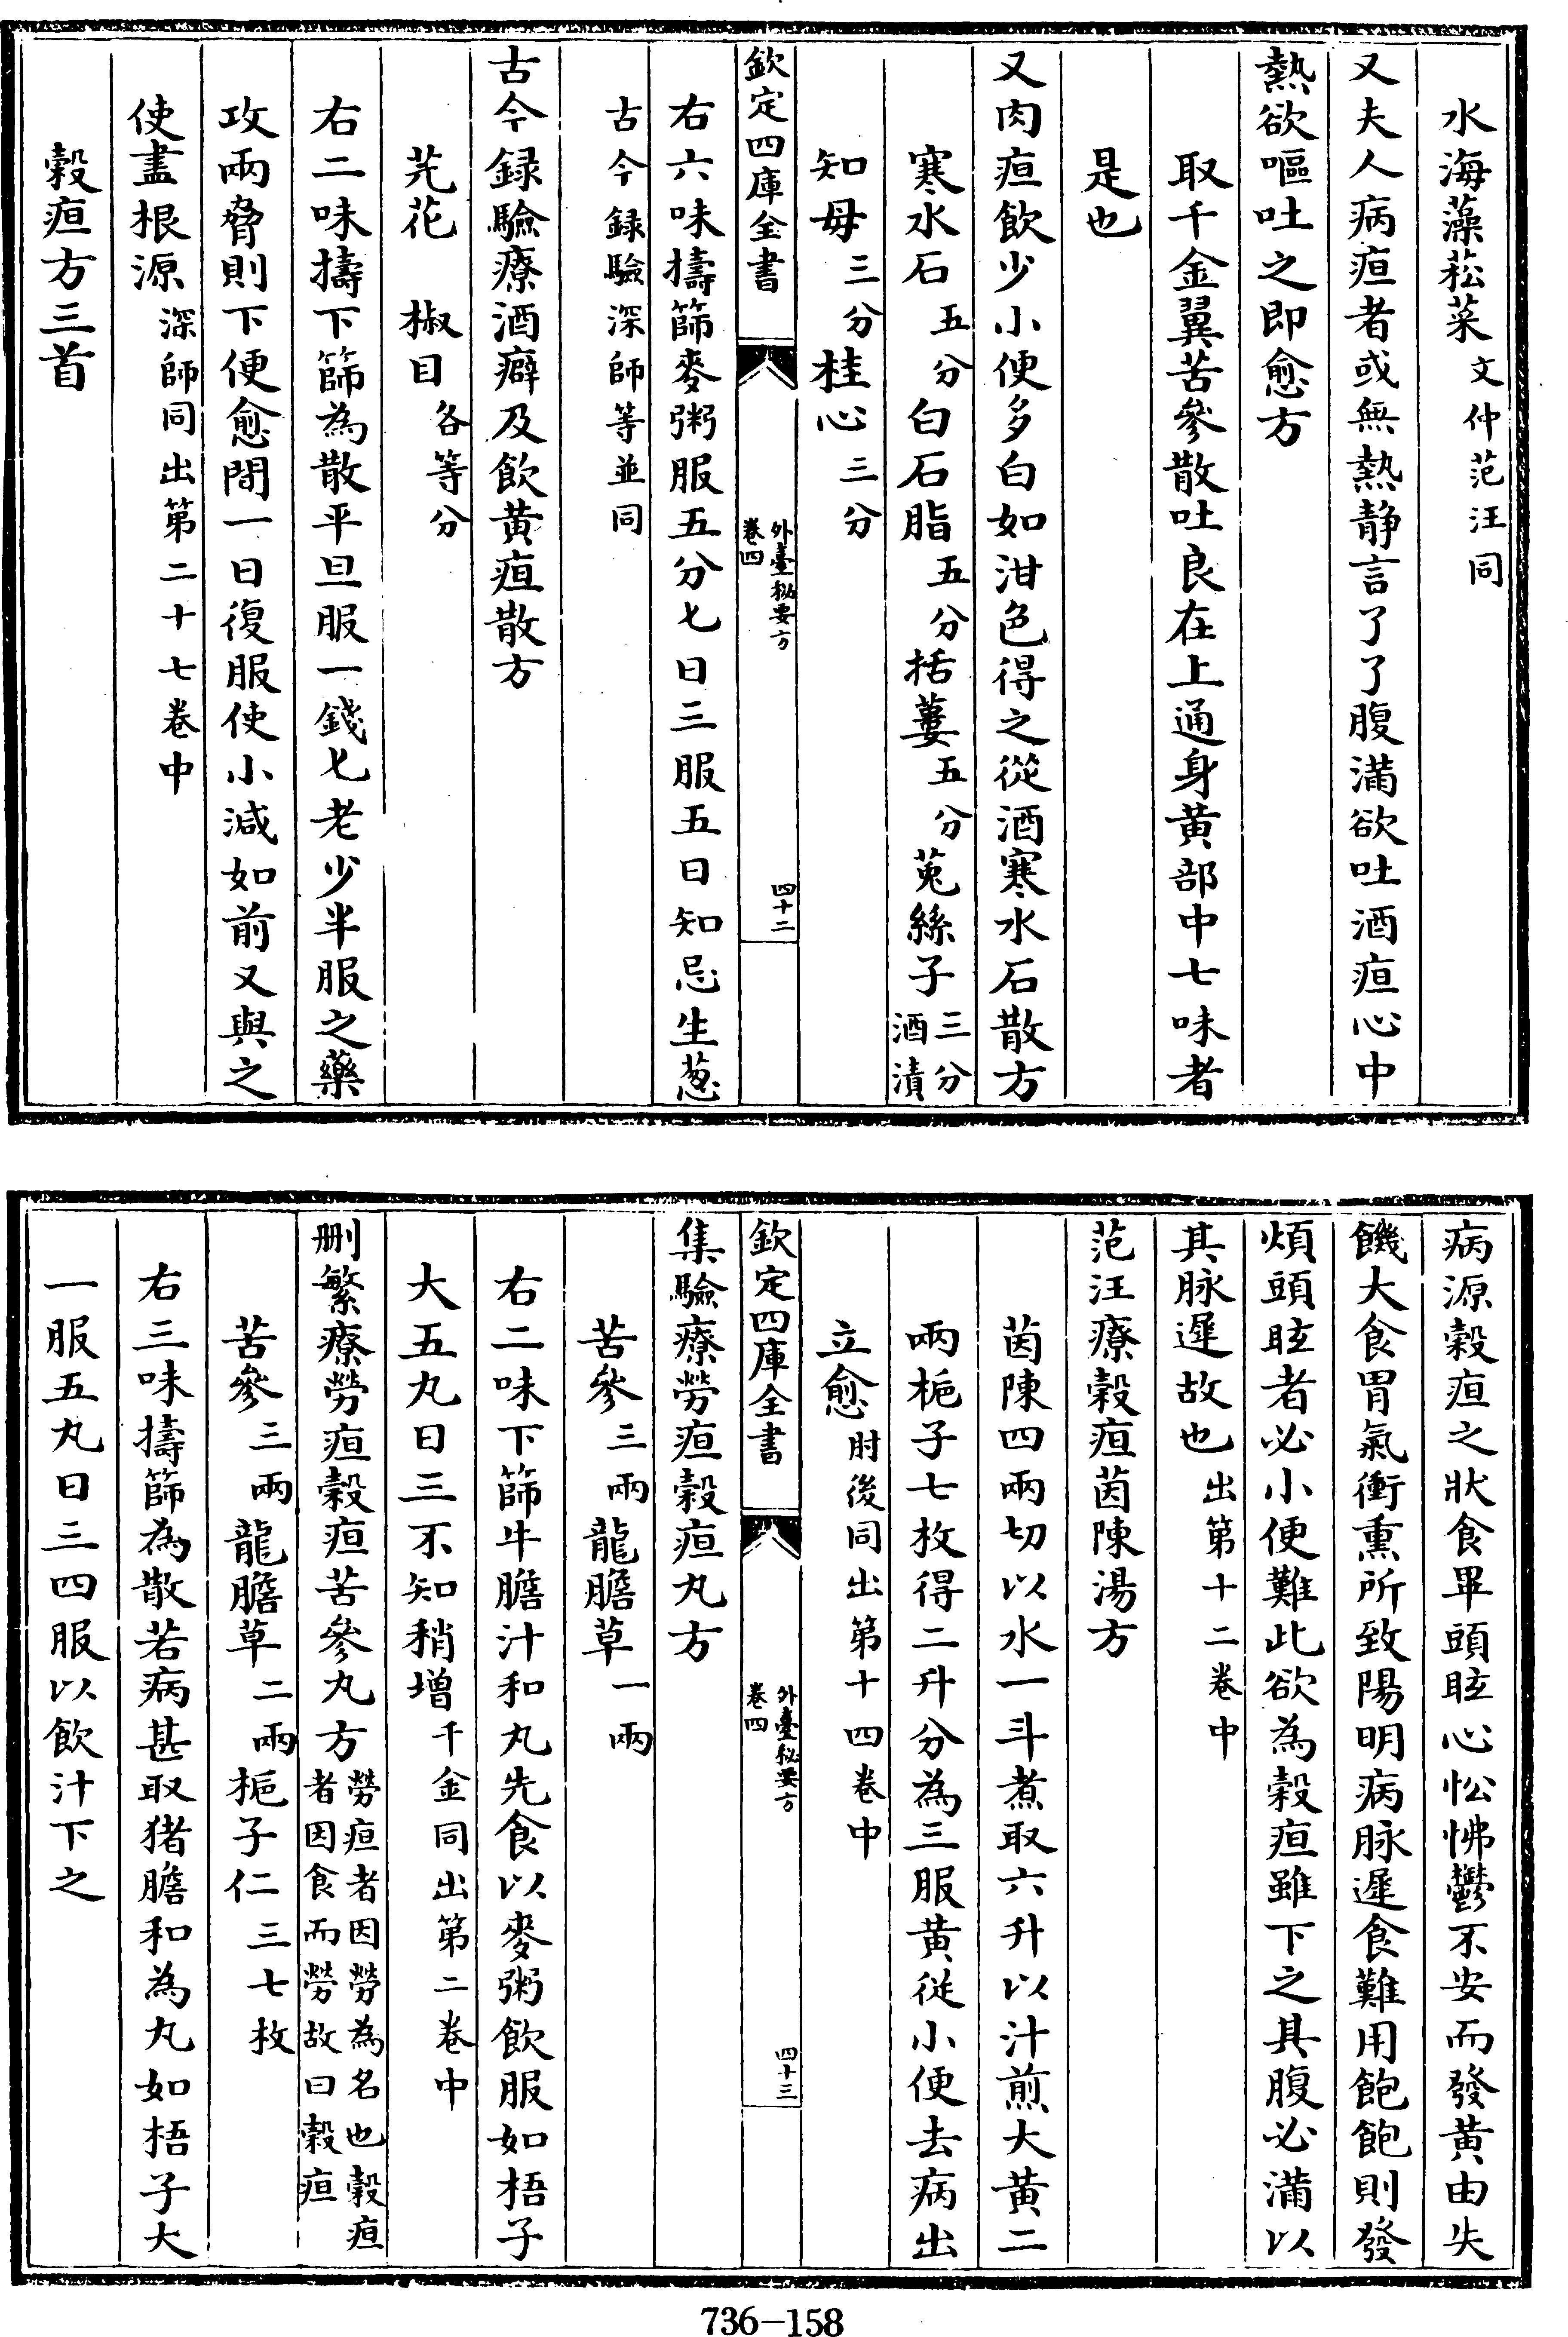 水海藻菘菜文仲范汪同
又夫人病疸者或無熱静言了了腹滿欲吐酒疸心中
熱欲嘔吐之即愈方
取千金翼苦參散吐良在上通身黄部中七味者
是也
又肉疸飲少小便多白如泔色得之從酒寒水石散方
寒水石五分白石脂五分栝蔞五分莵絲子三分酒漬
知母三分桂心三分
欽定四庫全書 外臺秘要方卷四 四十二
右六味擣篩麥粥服五分七日三服五日知忌生葱
古今録驗深師等並同
古今録驗療酒癖及飲黄疸散方
芫花 椒目各等分
右二味擣下篩為散平旦服一錢七老少半服之藥
攻兩脅則下便愈閒一日復服使小減如前又與之
使盡根源深師同出第二十七卷中
穀疸方三首
病源穀疸之狀食畢頭眩心忪怫鬱不安而發黄由失
饑大食胃氣衝熏所致陽明病脉遲食難用飽飽則發
煩頭眩者必小便難此欲為穀疸雖下之其腹必滿以
其脉遲故也出第十二卷中
范汪療穀疸茵陳湯方
茵陳四兩切以水一斗煮取六升以汁煎大黄二
兩梔子七枚得二升分為三服黄從小便去病出
立愈肘後同出第十四卷中
欽定四庫全書 外臺秘要方卷四 四十三
集驗療勞疸穀疸丸方
苦參三兩龍膽草一兩
右二味下篩牛膽汁和丸先食以麥粥飲服如梧子
大五丸日三不知稍增千金同出第二卷中
删繁療勞疸穀疸苦參丸方勞疸者因勞為名也穀疸者因食而勞故曰穀疸
苦參三兩龍膽草二兩梔子仁三七枚
右三味擣篩為散若病甚取猪膽和為丸如梧子大
一服五丸日三四服以飲汁下之
736-158